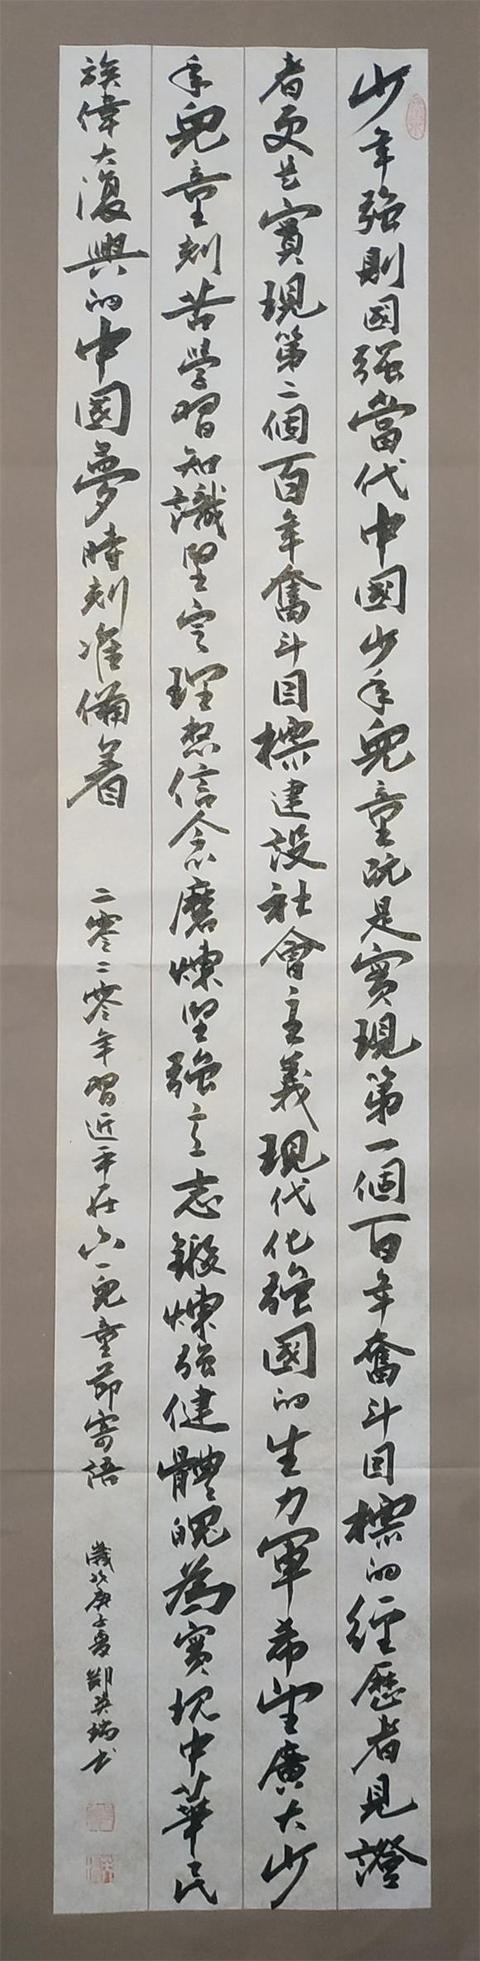 少年強則國強當代中國少年兒童既是實現第一個百年奮斗目標的經歷者見證
者更是實現第二個百年奮斗目標建設社會主義現代化強國的生力軍希望廣大少
年兒童刻苦學習知識堅定理想信念磨煉堅強意志鍛煉強健體魄為實現中華民
族偉大復興的中國夢時刻准備着
二零二零年習近平在六一兒童節寄語
歲次庚子夏 英瑞书